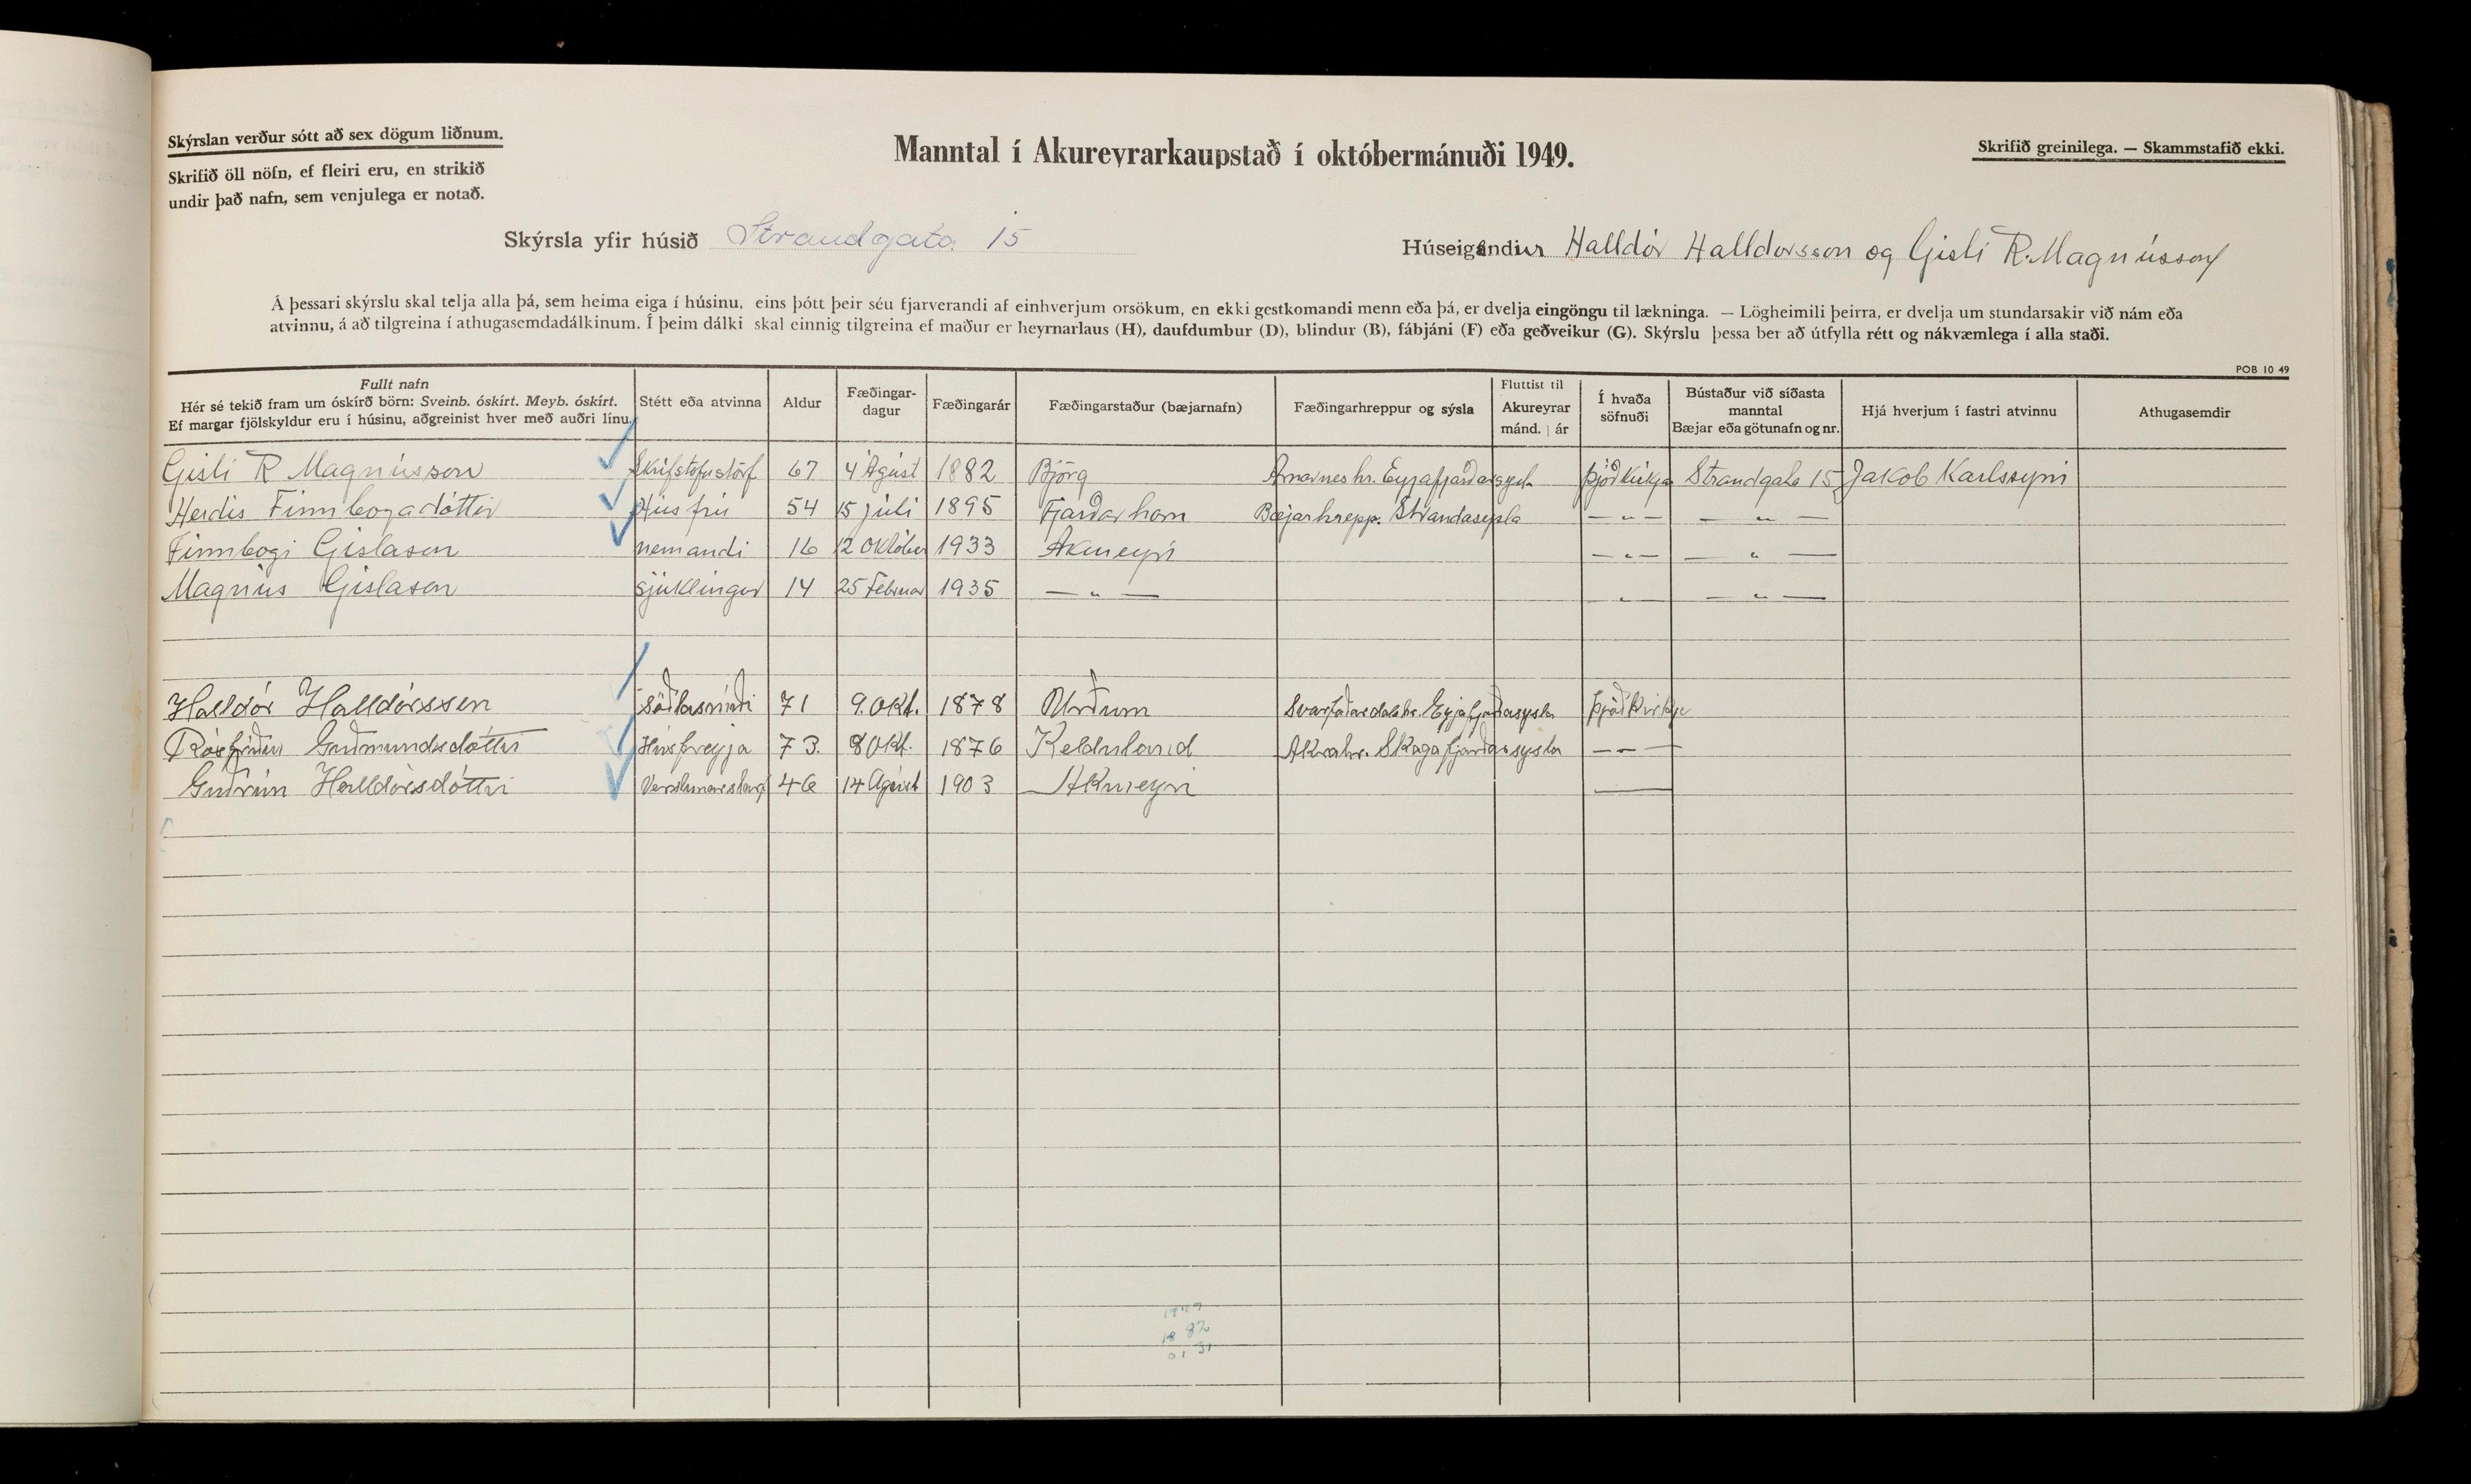 Skýrslan verður sótt að sex dögum liðnum.
Skrifið öll nöfn, ef fleiri eru, en strikið
undir það nafn, sem venjulega er notað.
Manntal í Akureyrarkaupstað í októbermánuði 1949.
Skrifið greinilega. — Skammstafið ekki.
Skýrsla yfir húsið Strandgata 15
Húseigendur Halldór Halldorsson og Gisli R. Magnússon
Á þessari skýrslu skal telja alla þá, sem heima eiga í húsinu, eins þótt þeir séu fjarverandi af einhverjum orsökum, en ekki gestkomandi menn eða þá, er dvelja eingöngu til lækninga. — Lögheimili þeirra, er dvelja um stundarsakir við nám eða
atvinnu, á að tilgreina í athugasemdadálkinum. Í þeim dálki skal einnig tilgreina ef maður er heyrnarlaus (H), daufdumbur (D), blindur (B), fábjáni (F) eða geðveikur (G). Skýrslu þessa ber að útfylla rétt og nákvæmlega í alla staði.
POB 10 49
Fullt nafn
Hér sé tekið fram um óskírð börn: Sveinb. óskírt. Meyb. óskírt.
Ef margar fjölskyldur eru í húsinu, aðgreinist hver með auðri línu.
Stétt eða atvinna
Aldur
Fæðingar-
dagur
Fæðingarár
Fæðingarstaður (bæjarnafn)
Fæðingarhreppur og sýsla
Fluttist til
Akureyrar
mánd. | ár
Í hvaða
söfnuði
Bústaður við síðasta
manntal
Bæjar eða götunafn og nr.
Hjá hverjum í fastri atvinnu
Athugasemdir
Gisli R Magnússon Skrifstofustörf 67 4 Ágúst 1882 Björg Arnarnes hr. Eyjafjarðarsysla Þjóðkirkja Strandgata 15 Jakob Karlssyni
Herdis Finnbogadóttir Húsfrú 54 15 júli 1895 Fjarðarhorn Bæjarhrepp. Strandasysla — „ — — „ —
Finnbogi Gislason nemandi 16 12 Október 1933 Akureyri — „ — — „ —
Magnús Gislason sjúklingur 14 25 Februar 1935 — „ — „ — „ —
Halldór Halldórsson Söðlasmiði 71 9. Okt. 1878 Urðum Svarfaðardalshr. Eyjafjarðasysla Þjóðkirkja
Rósfríður Guðmundsdóttir Húsfreyja 73. 8 Okt. 1876 Kelduland Akrahr. Skagafjarðarsysla — — —
Guðrún Halldórsdóttir Verslunarstarf 46 14 Ágúst 1903 Akureyri —
1949
18 82